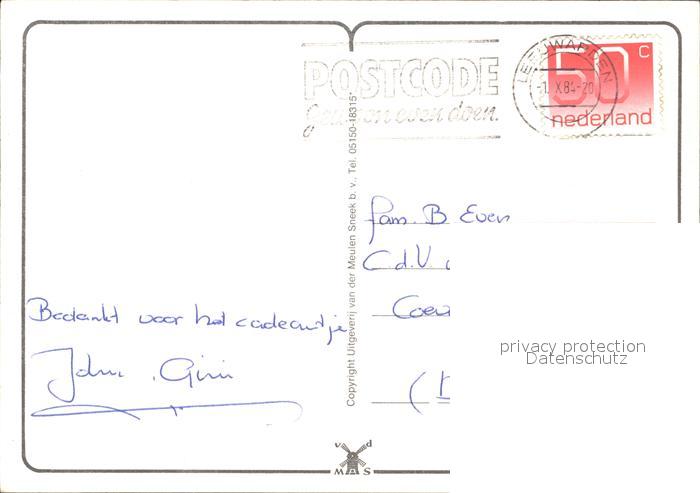 POSTCODE
gewoon even doen.
LEEUWARDEN
-1. X.84-20
50 c
nederland
Copyright Uitgeverij van der Meulen Sneek b.v., Tel. 05150-18315*
fam. B. Even
C.d.V.
Coev
(
Bedankt voor het cadeautje
John . Gini
privacy protection
Datenschutz
v d
MAS